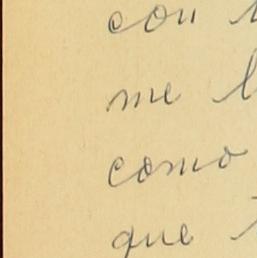 con
me
como
que